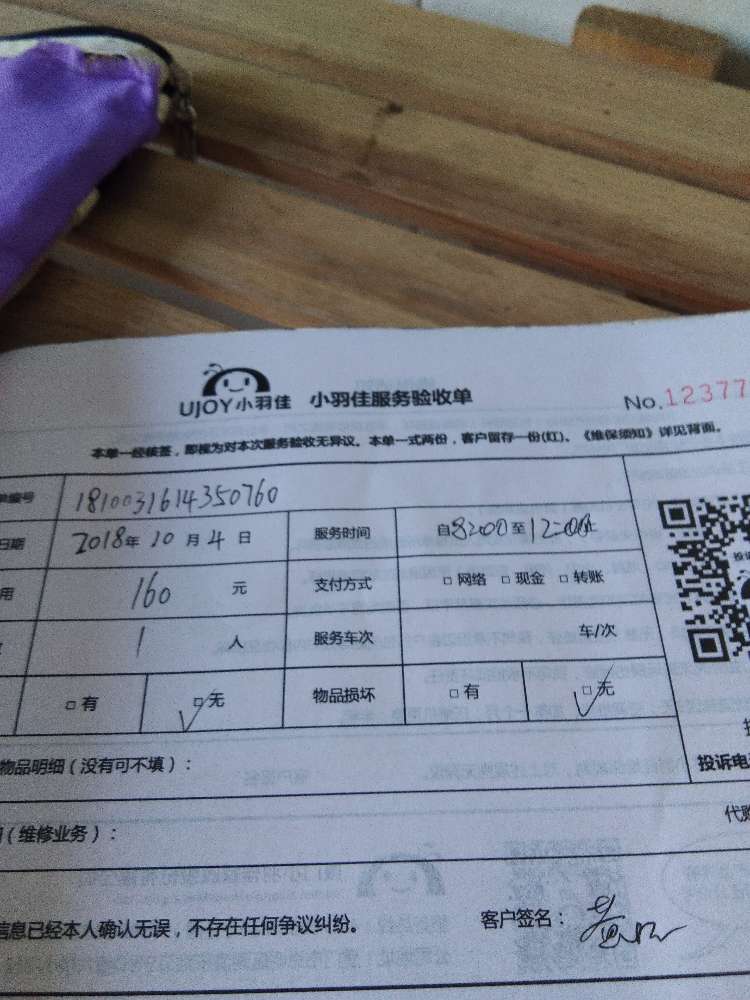 UJOY小羽佳 小羽佳服务验收单 No.12377
本单一经核签，即视为对本次服务验收无异议。本单一式两份，客户留存一份(红)。《维保须知》详见背面。
单编号 1810031614350760
日期 2018年 10 月 4 日 服务时间 自8:00至12:00止
用 160 元 支付方式 □网络 □现金 □转账
1 人 服务车次 车/次
□有 □无 物品损坏 □有 □无
物品明细（没有可不填）：
投诉电
（维修业务）：
代
信息已经本人确认无误，不存在任何争议纠纷。 客户签名：